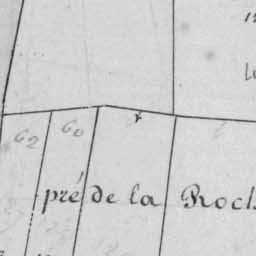 62 60
pré de la Roch